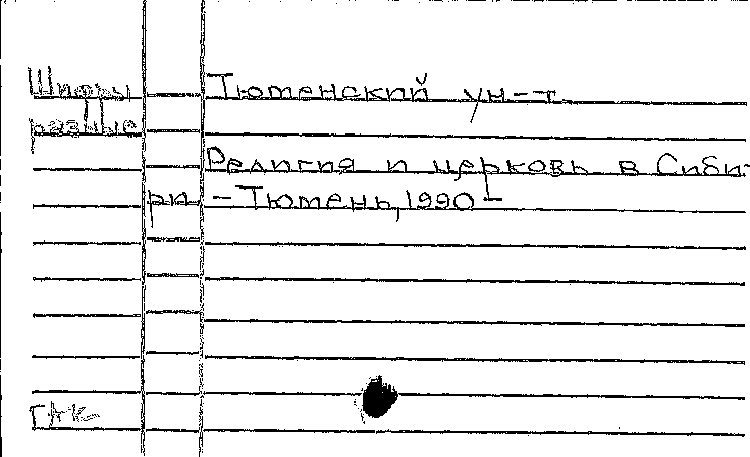 Шифры
разные
Тюменский ун-т.
Религия и церковь в Сиби-
ри - Тюмень, 1990 -
ГАК